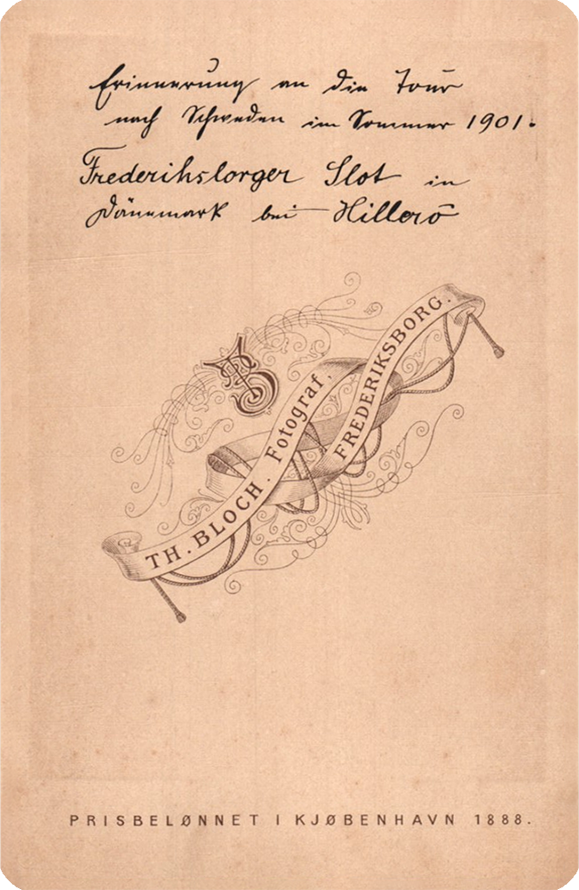 Erinnerung an die Tour
nach Schweden im Sommer 1901.
Frederikslorger Slot in
Dänemark bei Hillerö
TB
TH. BLOCH. Fotograf.
FREDERIKSBORG.
PRISBELØNNET I KJØBENHAVN 1888.